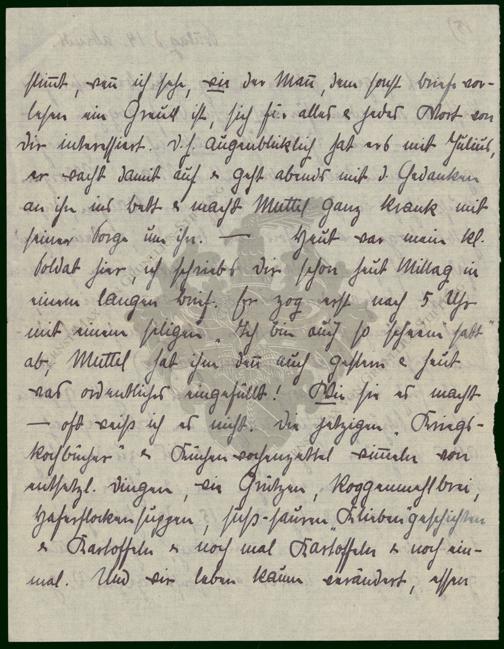 stimmt, wenn ich sehe, wie der Mann, dem sonst Briefe vor-
lesen ein Greuel ist, sich für alles & jedes Wort von
Dir interessiert. D.h. augenblicklich hat ers mit Julius,
er wacht damit auf & geht abends mit d. Gedanken
an ihn ins Bett & macht Muttel ganz krank mit
seiner Sorge um ihn. — Heut war mein kl.
Soldat hier, ich schriebs Dir schon heut Mittag in
einem langen Brief. Er zog erst nach 5 Uhr
mit einem seligen "Ich bin auch so scheen satt"
ab, Muttel hat ihm denn auch gestern & heut
was ordentliches eingefüllt! Wie sie es macht
— oft weiß ich es nicht. Die jetzigen "Kriegs-
kochbücher" & Küchenwochenzettel wimmeln von
entsetzl. Dingen, wie Grützen, Roggenmehlbrei,
Haferflockensuppen, süß-sauren geschichten
& Kartoffeln & noch mal Kartoffeln & noch ein-
mal. Und wir leben kaum verändert, essen